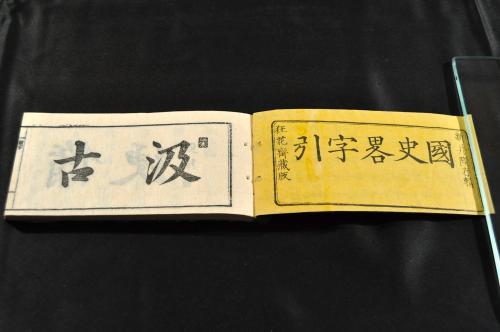 國史畧字引
狂花齋藏版
汲古